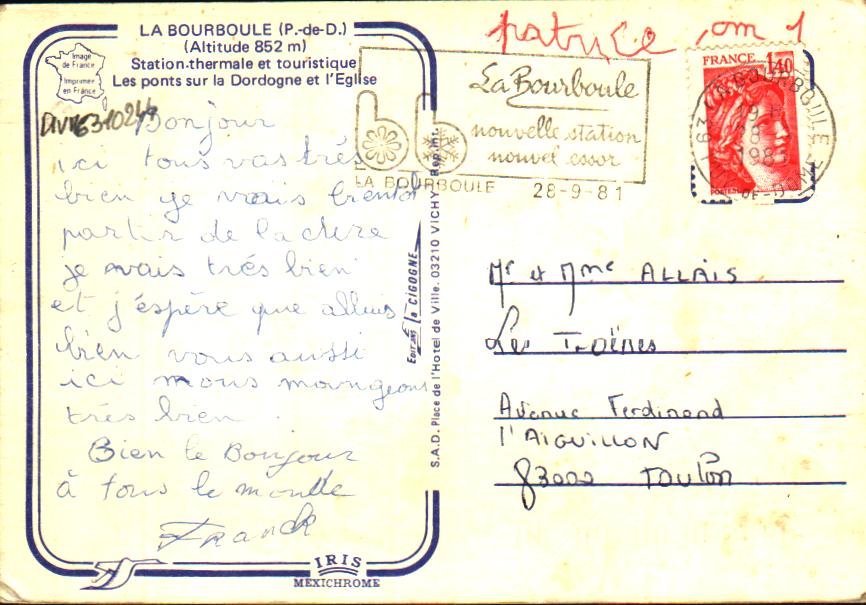 LA BOURBOULE (P.-de-D.)
(Altitude 852 m)
Station thermale et touristique
Les ponts sur la Dordogne et l'Eglise
Image
de France
Imprimée
en France
Bonjour
ici tous vas très
bien je vais bientot
partir de la cure
je vais très bien
et j'éspère que allais
bien vous aussi
ici nous mangeons
très bien.
Bien le Bonjour
à tous le monde
Franck
IRIS
MEXICHROME
Editions la CIGOGNE
S.A.D. Place de l'Hotel de Ville. 03210 VICHY Rep. Int.
patrice
La Bourboule
nouvelle station
nouvel essor
LA BOURBOULE 28-9-81
FRANCE 1,40
POSTES
63 LA BOURBOULE
28-9
PUY-DE-DOME
Mr et Mme ALLAIS
Les Troënes
Avenue Ferdinand
l'AIGUILLON
83000 TOULON